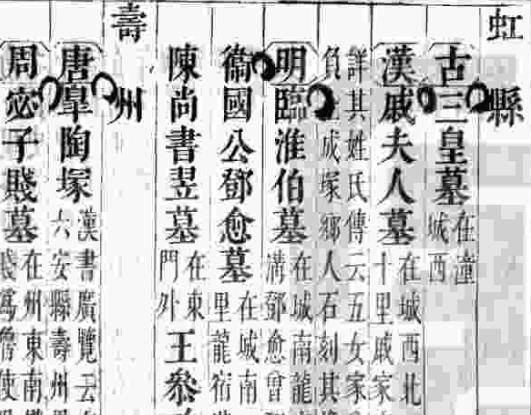 虹縣
古三皇墓在潼城西
漢戚夫人墓在城西北十里戚家
詳其姓氏傳云五女家負土成塚鄉人石刻其
明臨淮伯墓在城南龍溝鄧愈曾
衞國公鄧愈墓在城南里龍宿
陳尚書翌墓在東門外王叅
壽州
唐臯陶塚漢書廣覽云六安縣壽州
周宓子賤墓在州東南賤爲魯使